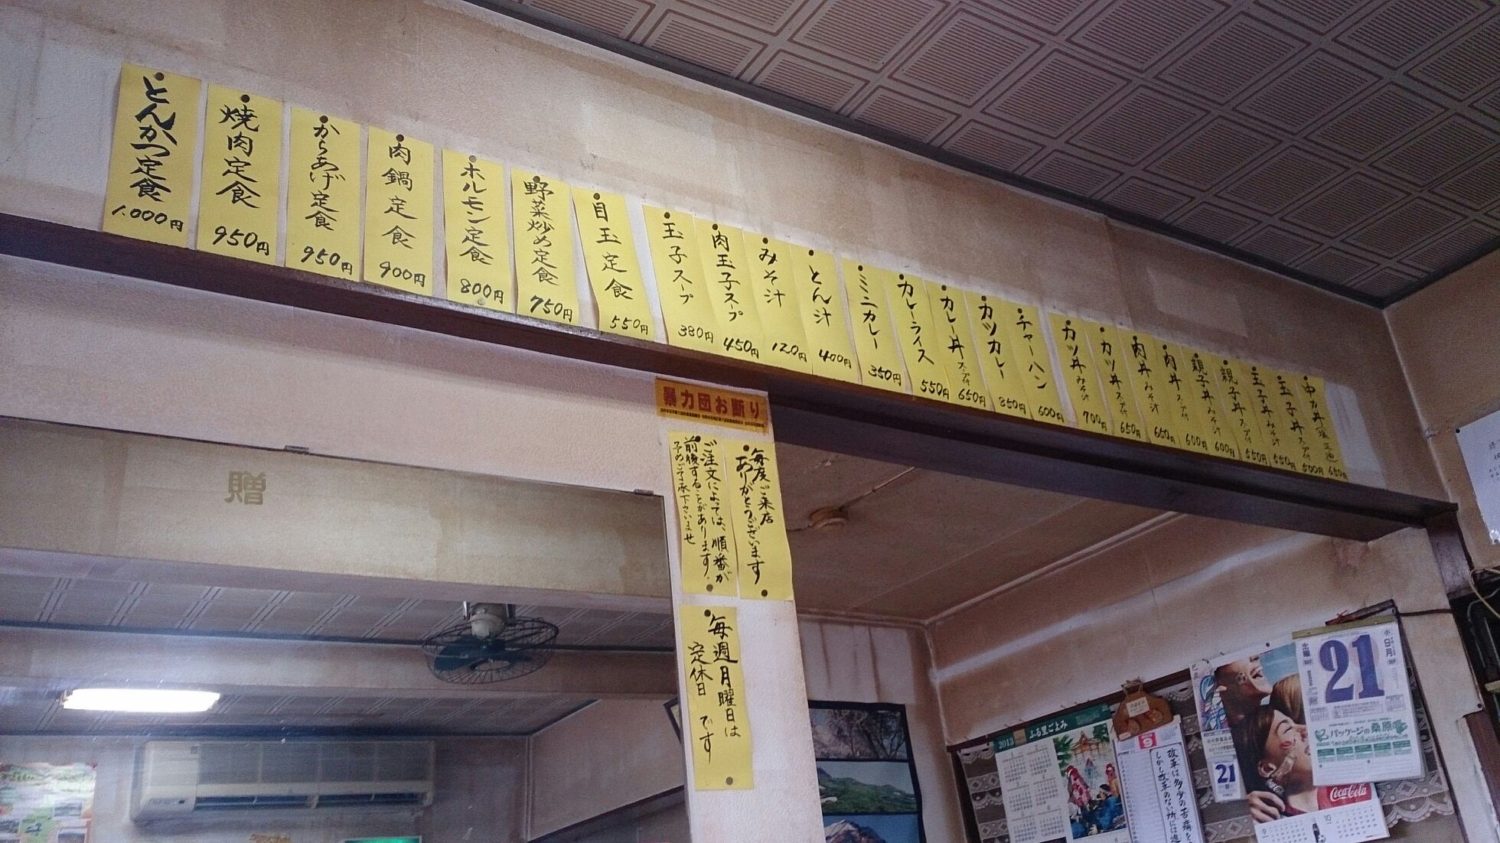 とんかつ定食 1.000円
焼肉定食 950円
からあげ定食 950円
肉鍋定食 900円
ホルモン定食 800円
野菜炒め定食 750円
目玉定食 550円
玉子スープ 380円
肉玉子スープ 450円
みそ汁 120円
とん汁 400円
ミニカレー 350円
カレーライス 550円
カレー丼 スープ付 650円
カツカレー 850円
チャーハン 600円
カツ丼 みそ汁 700円
カツ丼 スープ付 650円
肉丼 みそ汁 650円
肉丼 スープ付 600円
親子丼 みそ汁 600円
親子丼 スープ付 550円
玉子丼 みそ汁 550円
玉子丼 スープ付 500円
中力丼 650円
暴力団お断り
毎度ご来店
ありがとうございます
ご注文によっては、順番が
前後することがあります。
予めご了承下さいませ
毎週月曜日は
定休日です
贈
2013 ふる里ごよみ
改革は多少の苦痛を
しかし改革のない所には進
土曜
21
9月
パッケージの桑原
21
Coca-Cola
9
10